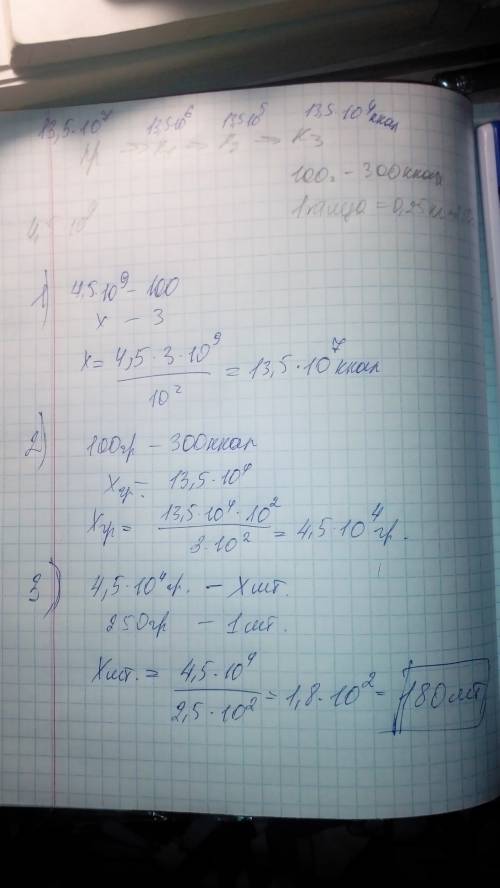 13,5·10⁷ 13,5·10⁶ 13,5·10⁵ 13,5·10⁴ ккал
К₃
100г. - 300ккал
4,5·10⁹
1) 4,5·10⁹ - 100
х - 3
х = 4,5·3·10⁹ / 10² = 13,5·10⁷ ккал
2) 100гр - 300ккал
Хгр = 13,5·10⁴
Хгр = 13,5·10⁴·10² / 3·10² = 4,5·10⁴ гр.
3) 4,5·10⁴г. - Хшт.
250гр - 1шт.
Хшт. = 4,5·10⁴ / 2,5·10² = 1,8·10² = 180шт